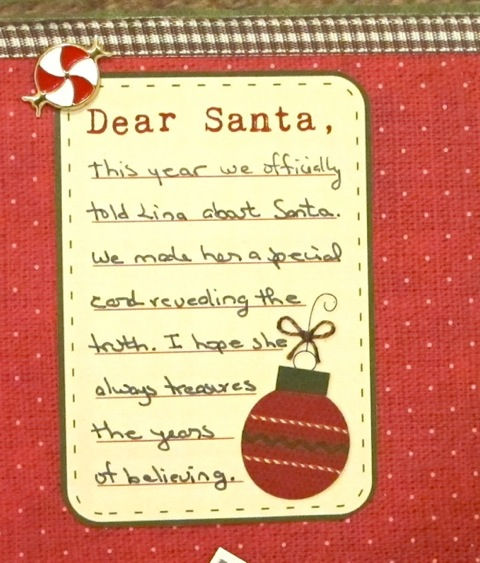 Dear Santa,
This year we officially
told Lina about Santa.
We made her a special
card revealing the
truth. I hope she
always treasures
the years
of believing.